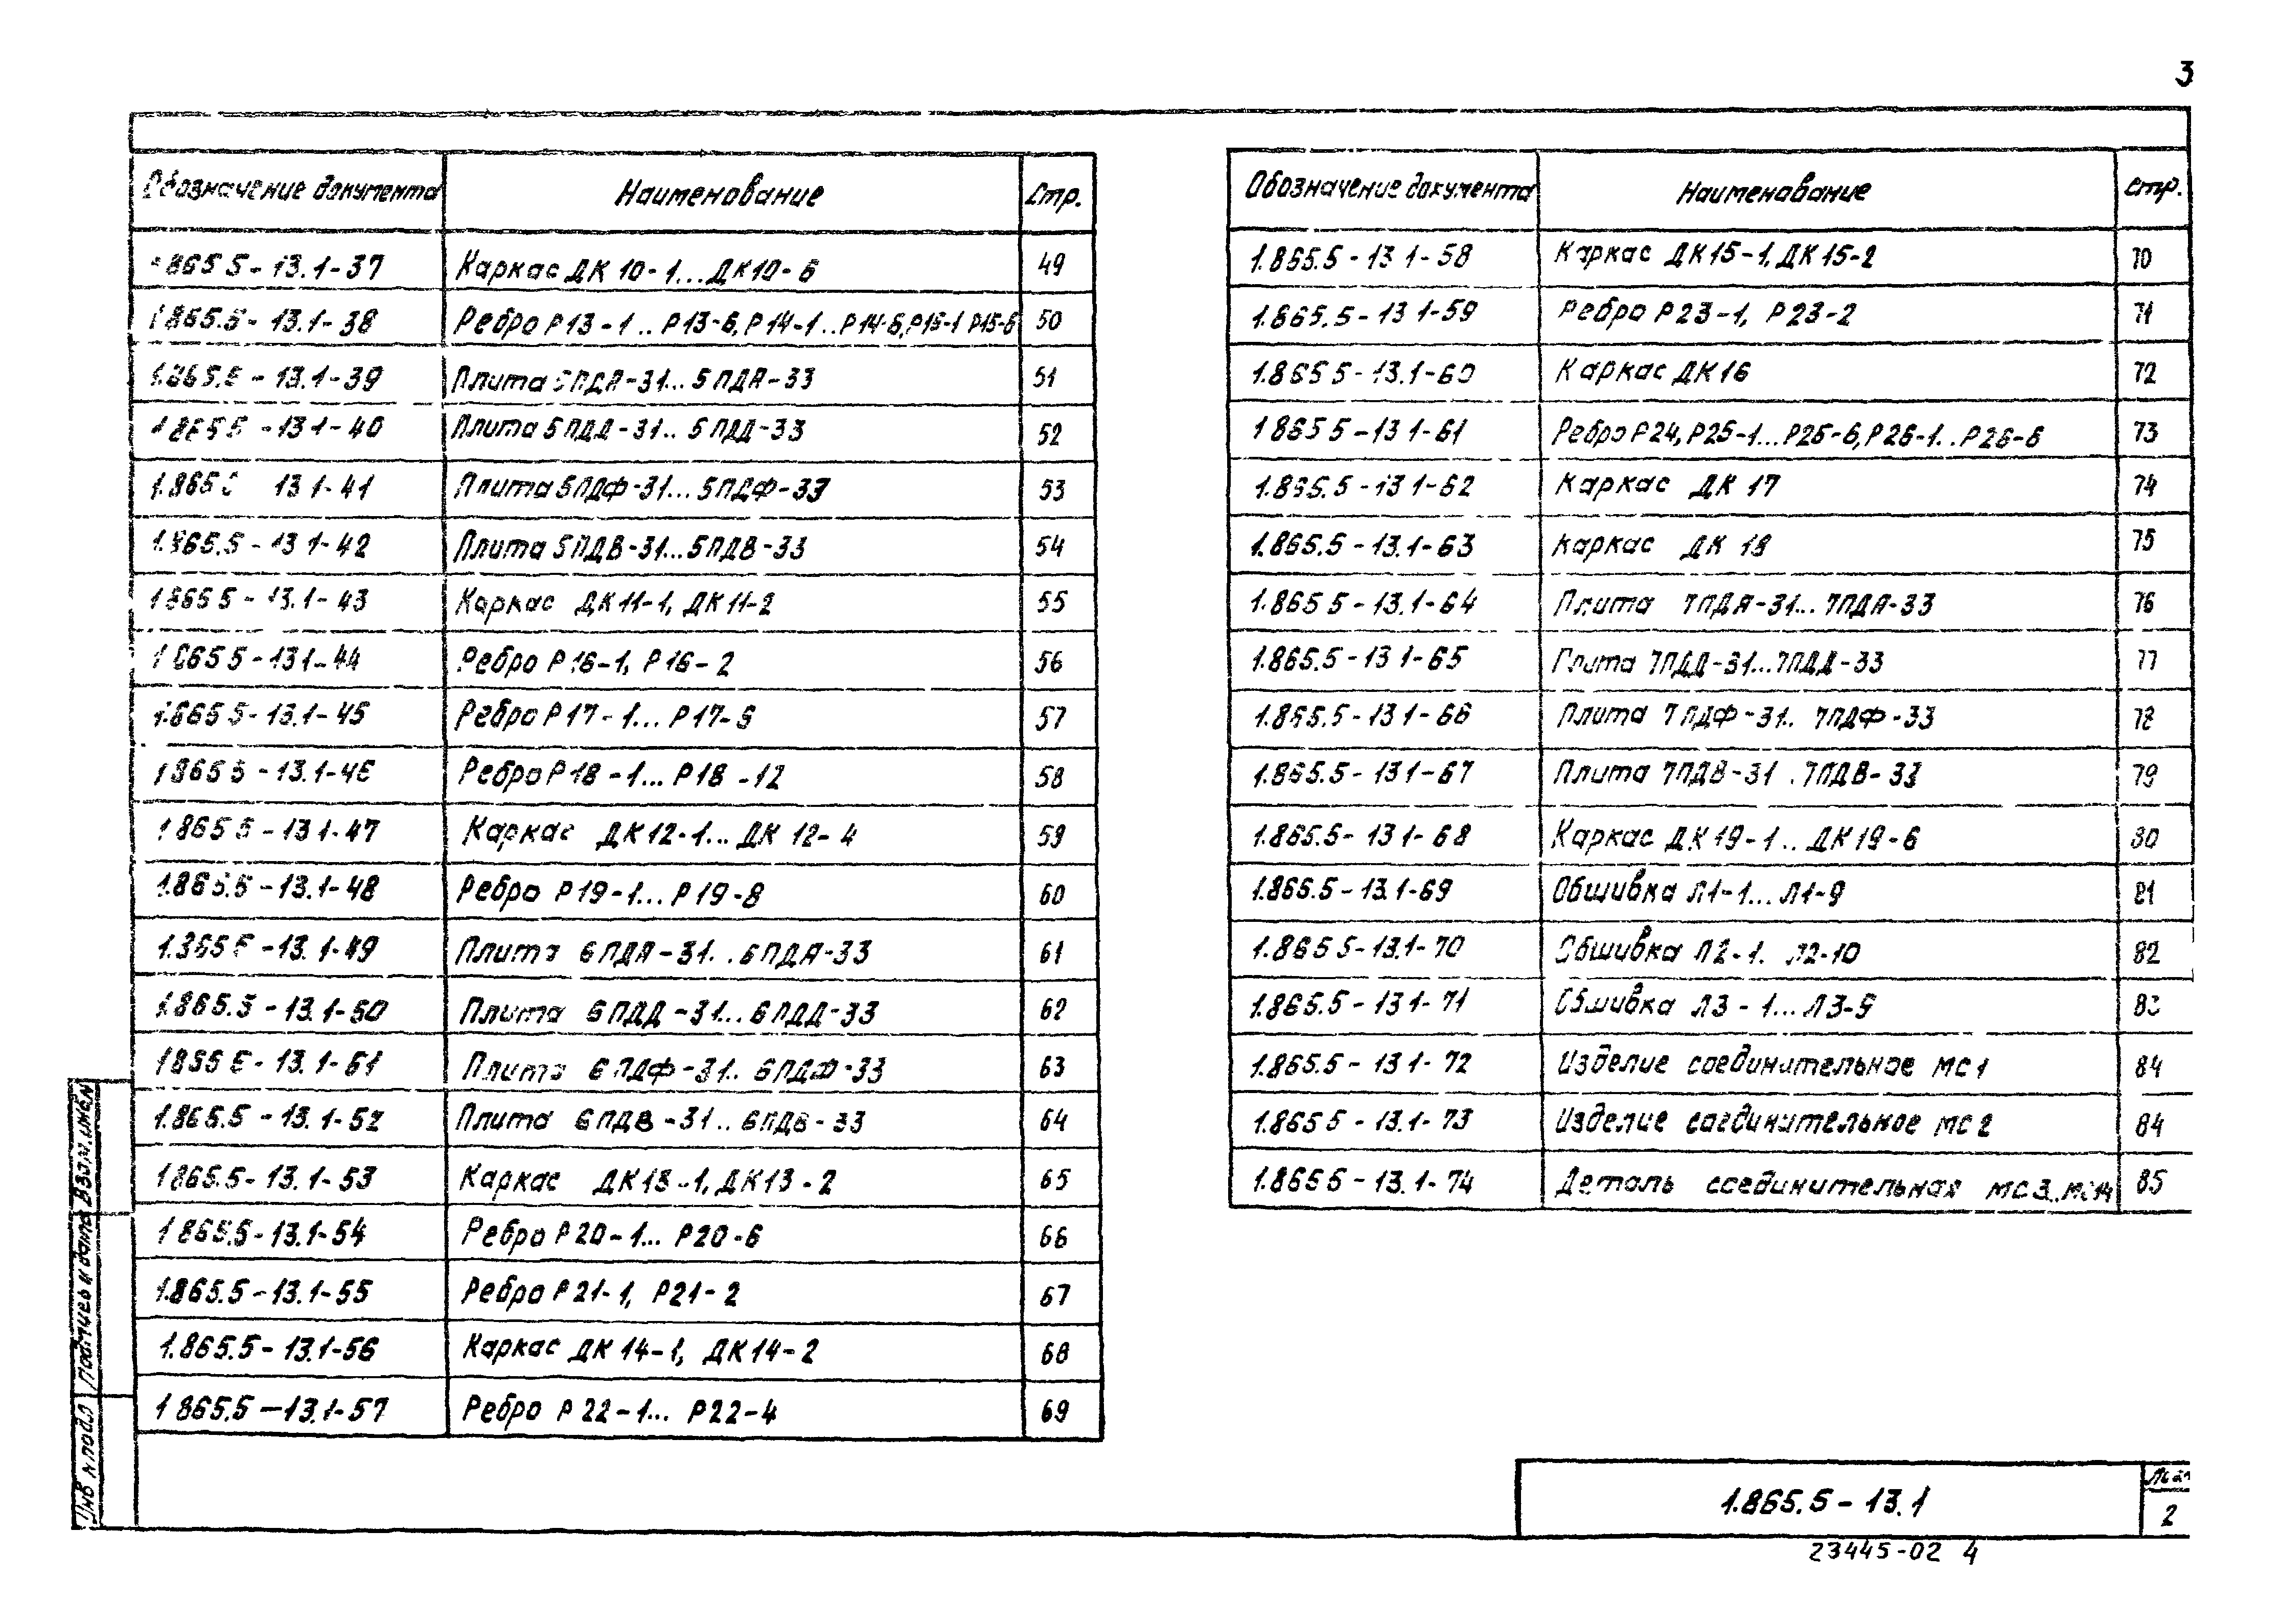 3
Обозначение документа Наименование Стр.
1.865.5-13.1-37 Каркас ДК10-1...ДК10-6 49
1.865.5-13.1-38 Ребро Р13-1..Р13-6, Р14-1..Р14-6, Р15-1 Р15-6 50
1.865.5-13.1-39 Плита 5ПДА-31...5ПДА-33 51
1.865.5-13.1-40 Плита 5ПДД-31..5ПДД-33 52
1.865.5 13.1-41 Плита 5ПДФ-31...5ПДФ-33 53
1.865.5-13.1-42 Плита 5ПДВ-31...5ПДВ-33 54
1.865.5-13.1-43 Каркас ДК11-1, ДК11-2 55
1.865.5-13.1-44 Ребро Р16-1, Р16-2 56
1.865.5-13.1-45 Ребро Р17-1...Р17-6 57
1.865.5-13.1-46 Ребро Р18-1...Р18-12 58
1.865.5-13.1-47 Каркас ДК12-1...ДК12-4 59
1.865.5-13.1-48 Ребро Р19-1...Р19-8 60
1.865.5-13.1-49 Плита 6ПДА-31..6ПДА-33 61
1.865.5-13.1-50 Плита 6ПДД-31..6ПДД-33 62
1.865.5-13.1-51 Плита 6ПДФ-31..6ПДФ-33 63
1.865.5-13.1-52 Плита 6ПДВ-31..6ПДВ-33 64
1.865.5-13.1-53 Каркас ДК13-1, ДК13-2 65
1.865.5-13.1-54 Ребро Р20-1...Р20-6 66
1.865.5-13.1-55 Ребро Р21-1, Р21-2 67
1.865.5-13.1-56 Каркас ДК14-1, ДК14-2 68
1.865.5-13.1-57 Ребро Р22-1...Р22-4 69
Обозначение документа Наименование Стр.
1.865.5-13.1-58 Каркас ДК15-1, ДК15-2 70
1.865.5-13.1-59 Ребро Р23-1, Р23-2 71
1.865.5-13.1-60 Каркас ДК16 72
1.865.5-13.1-61 Ребро Р24, Р25-1...Р25-6, Р26-1..Р26-6 73
1.865.5-13.1-62 Каркас ДК17 74
1.865.5-13.1-63 Каркас ДК18 75
1.865.5-13.1-64 Плита 7ПДА-31...7ПДА-33 76
1.865.5-13.1-65 Плита 7ПДД-31...7ПДД-33 77
1.865.5-13.1-66 Плита 7ПДФ-31..7ПДФ-33 78
1.865.5-13.1-67 Плита 7ПДВ-31..7ПДВ-33 79
1.865.5-13.1-68 Каркас ДК19-1..ДК19-6 80
1.865.5-13.1-69 Обшивка Л1-1...Л1-9 81
1.865.5-13.1-70 Обшивка Л2-1. Л2-10 82
1.865.5-13.1-71 Обшивка Л3-1...Л3-9 83
1.865.5-13.1-72 Изделие соединительное МС1 84
1.865.5-13.1-73 Изделие соединительное МС2 84
1.865.5-13.1-74 Деталь соединительная МС3..МС14 85
Инв N подл Подпись и дата Взам.инв.N
1.865.5-13.1
Лист
2
23445-02 4